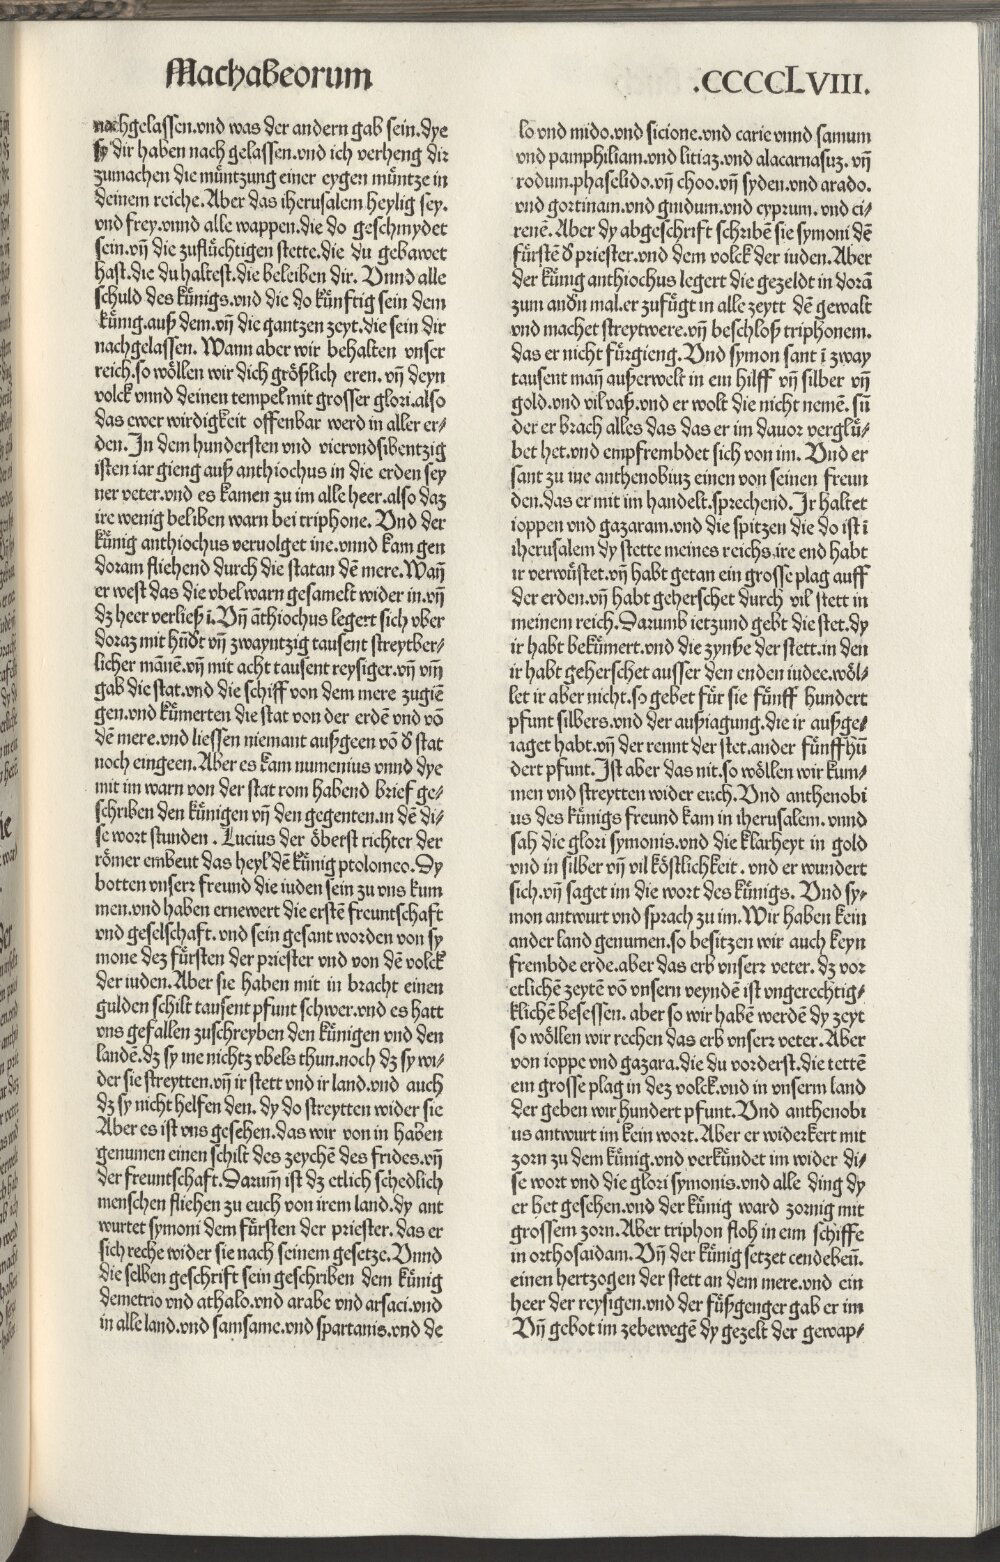 Machabeorum
.CCCCLVIII.
nachgelassen.vnd was der andern gab sein.dye
sy dir haben nach gelassen.vnd ich verheng dir
zumachen die müntzung einer eygen müntze in
deinem reiche.Aber das iherusalem heylig sey.
vnd frey.vnnd alle wappen.die do geschmydet
sein.vñ die zuflüchtigen stette.die du gebawet
hast.die du haltest.die beleiben dir. Vnnd alle
schuld des künigs.vnd die do künftig sein dem
künig.auß dem.vñ die gantzen zeyt.die sein dir
nachgelassen. Wann aber wir behalten vnser
reich.so wöllen wir dich größlich eren. vñ deyn
volck vnnd deinen tempel mit grosser glori.also
das ewer wirdigkeit offenbar werd in aller er/
den. In dem hundersten vnd viervndsibentzig
isten iar gieng auß anthiochus in die erden sey
ner veter.vnd es kamen zu im alle heer.also daz
ire wenig beliben warn bei triphone. Vnd der
künig anthiochus vervolget ine.vnnd kam gen
doram fliehend durch die statan dē mere.Wañ
er west das die vbel warn gesamelt wider in.vñ
dz heer verließ ī.Vñ āthiochus legert sich vber
doraz mit hūdt vñ zwayntzig tausent streytber/
licher māñē.vñ mit acht tausent reysiger.vñ vm̄
gab die stat.vnd die schiff von dem mere zugiē
gen.vnd kümerten die stat von der erdē vnd vō
dē mere.vnd liessen niemant außgeen vō d̕ stat
noch eingeen.Aber es kam numenius vnnd dye
mit im warn von der stat rom habend brief ge/
schriben den künigen vñ den gegenten.in dē di/
se wort stunden . Lucius der öberst richter der
römer embeut das heyl dē künig ptolomeo.Dy
botten vnserr freund die iuden sein zu vns kum
men.vnd haben ernewert die erstē freuntschaft
vnd geselschaft.vnd sein gesant worden von sy
mone dez fürsten der priester vnd von dē volck
der iuden.Aber sie haben mit in bracht einen
gulden schilt tausent pfunt schwer.vnd es hatt
vns gefallen zuschreyben den künigen vnd den
landē.dz sy ine nichtz vbels thun.noch dz sy wi/
der sie streytten.vñ ir stett vnd ir land.vnd auch
dz sy nicht helfen den. dy do streytten wider sie
Aber es ist vns gesehen.das wir von in haben
genumen einen schilt des zeychē des frides.vñ
der freuntschaft.Darum̄ ist dz etlich schedlich
menschen fliehen zu euch von irem land.dy ant
wurtet symoni dem fürsten der priester.das er
sich reche wider sie nach seinem gesetze.Vnnd
die selben geschrift sein geschriben dem künig
demetrio vnd athalo.vnd arabe vnd arsaci.vnd
in alle land.vnd samsame.vnd spartanis.vnd de
lo vnd mido.vnd sicione.vnd carie vnnd samum
vnd pamphiliam.vnd litiaz.vnd alacarnasuz. vñ
rodum.phaselido.vñ choo.vñ syden.vnd arado.
vnd gortinam.vnd gnidum.vnd cyprum. vnd ci/
renē.Aber dy abgeschrift schribē sie symoni dē
fürstē d̕ priester.vnd dem volck der iuden.Aber
der künig anthiochus legert die gezeldt in dorā
zum and̕n mal.er zufügt in alle zeytt dē gewalt
vnd machet streytwere.vñ beschloß triphonem.
das er nicht fürgieng. Vnd symon sant ī zway
tausent mañ außerwelt in ein hilff vñ silber vñ
gold.vnd vil vaß.vnd er wolt die nicht nemē. sū
der er brach alles das das er im davor verglü/
bet het.vnd empfrembdet sich von im. Vnd er
sant zu ine anthenobiuz einen von seinen freun
den.das er mit im handelt.sprechend.Ir haltet
ioppen vnd gazaram.vnd die spitzen die do ist ī
iherusalem dy stette meines reichs.ire end habt
ir verwüstet.vñ habt getan ein grosse plag auff
der erden.vñ habt geherschet durch vil stett in
meinem reich.Darumb ietzund gebt die stet.dy
ir habt bekümert.vnd die zynße der stett.in den
ir habt geherschet ausser den enden iudee.wöl/
let ir aber nicht.so gebet für sie fünff hundert
pfunt silbers.vnd der außiagung.die ir außge/
iaget habt.vñ der rennt der stet.ander fünffhū
dert pfunt. Ist aber das nit.so wöllen wir kum/
men vnd streytten wider euch.Vnd anthenobi
us des künigs freund kam in iherusalem. vnnd
sah die glori symonis.vnd die klarheyt in gold
vnd in silber vñ vil köstlichkeit . vnd er wundert
sich.vñ saget im die wort des künigs. Vnd sy/
mon antwurt vnd sprach zu im.Wir haben kein
ander land genumen.so besitzen wir auch keyn
frembde erde.aber das erb vnserr veter. dz vor
etlichē zeytē vō vnsern veyndē ist vngerechtig/
klichē besessen. aber so wir habē werdē dy zeyt
so wöllen wir rechen das erb vnserr veter. Aber
von ioppe vnd gazara.die du vorderst.die tettē
ein grosse plag in dez volck.vnd in vnserm land
Der geben wir hundert pfunt.Vnd anthenobi
us antwurt im kein wort.Aber er widerkert mit
zorn zu dem künig.vnd verkündet im wider di/
se wort vnd die glori symonis.vnd alle ding dy
er het gesehen.vnd der künig ward zornig mit
grossem zorn.Aber triphon floh in eim schiffe
in orthosaidam. Vñ der künig setzet cendebeū.
einen hertzogen der stett an dem mere.vnd ein
heer der reysigen.vnd der füßgenger gab er im
Vñ gebot im zebewegē dy gezelt der gewap/